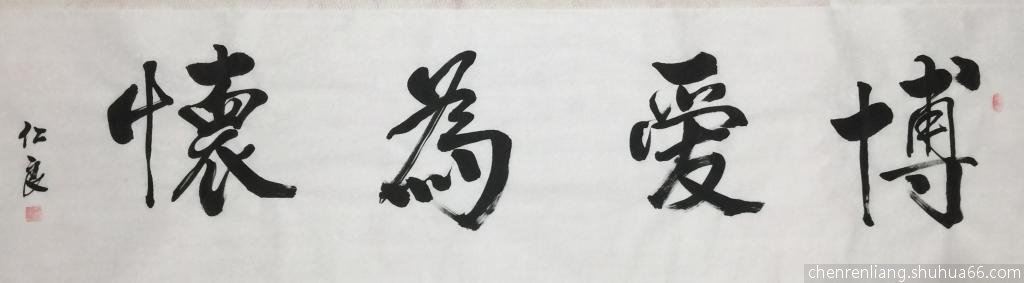 博愛為懷
仁良
chenrenliang.shuhua66.com